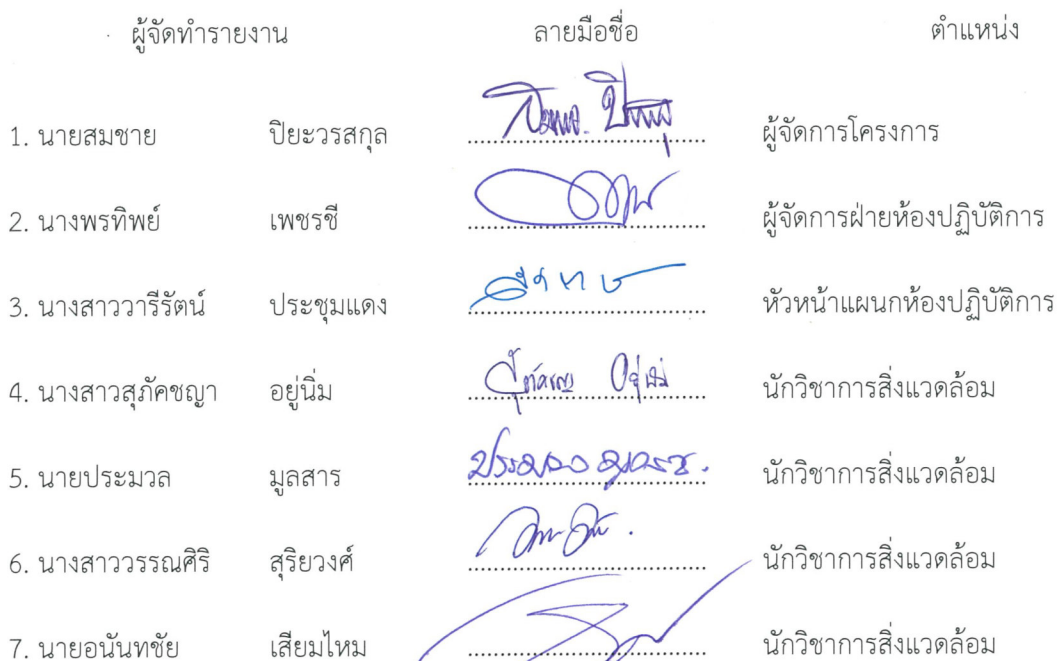 ผู้จัดทำรายงาน ลายมือชื่อ ตำแหน่ง
1. นายสมชาย ปิยะวรสกุล ผู้จัดการโครงการ
2. นางพรทิพย์ เพชรชี ผู้จัดการฝ่ายห้องปฏิบัติการ
3. นางสาววารีรัตน์ ประชุมแดง หัวหน้าแผนกห้องปฏิบัติการ
4. นางสาวสุภัคชญา อยู่นิ่ม นักวิชาการสิ่งแวดล้อม
5. นายประมวล มูลสาร นักวิชาการสิ่งแวดล้อม
6. นางสาววรรณศิริ สุริยวงศ์ นักวิชาการสิ่งแวดล้อม
7. นายอนันทชัย เสียมไหม นักวิชาการสิ่งแวดล้อม